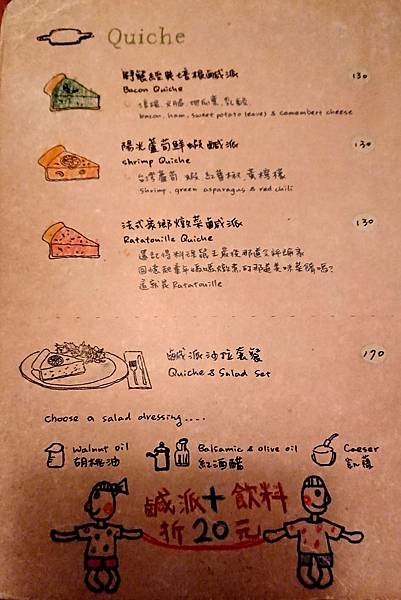 Quiche
經典培根鹹派 130
Bacon Quiche
培根, 火腿, 地瓜葉, 乳酪
bacon, ham, sweet potato leaves & camembert cheese
陽光蘆筍鮮蝦鹹派 130
shrimp Quiche
台灣蘆筍 蝦 紅番椒 黃檸檬
shrimp, green asparagus & red chili
法式家鄉燉菜鹹派 130
Ratatouille Quiche
還記得料理鼠王最後那道令評論家
回憶起童年媽媽燉煮的那道美味菜餚嗎?
這就是 Ratatouille
鹹派沙拉套餐 170
Quiche & Salad Set
Choose a salad dressing....
Walnut oil
胡桃油
Balsamic & olive oil
紅酒醋
Caeser
凱薩
鹹派+飲料
折20元